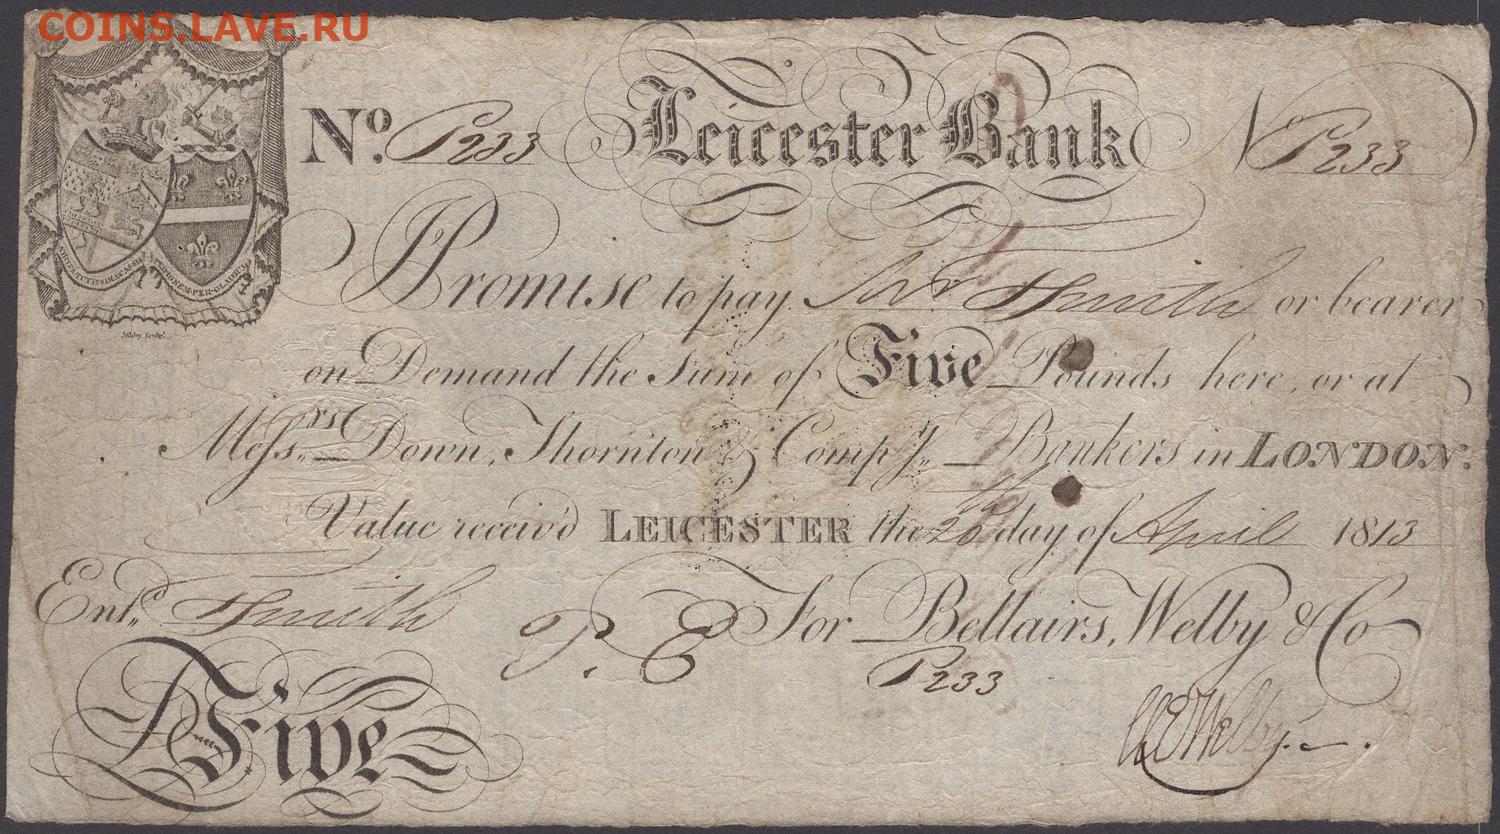 COINS.LAVE.RU
No. P233 Leicester Bank N P233
I Promise to pay Mr Smith or bearer
on Demand the Sum of Five Pounds here, or at
Messrs. Down, Thornton & Compy. Bankers in LONDON.
Value receiv'd LEICESTER the 20 day of April 1813
Entd. Smith For Bellairs, Welby & Co
P233
Five
Welby
PER
Ashby Sculpt